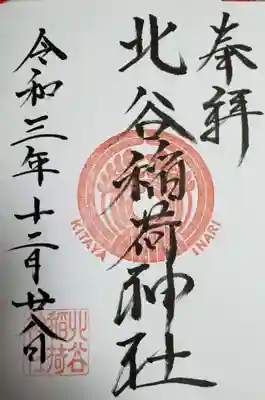 奉拝
北谷稲荷神社
KITAYA INARI
令和三年十二月廿八日
北谷稲荷